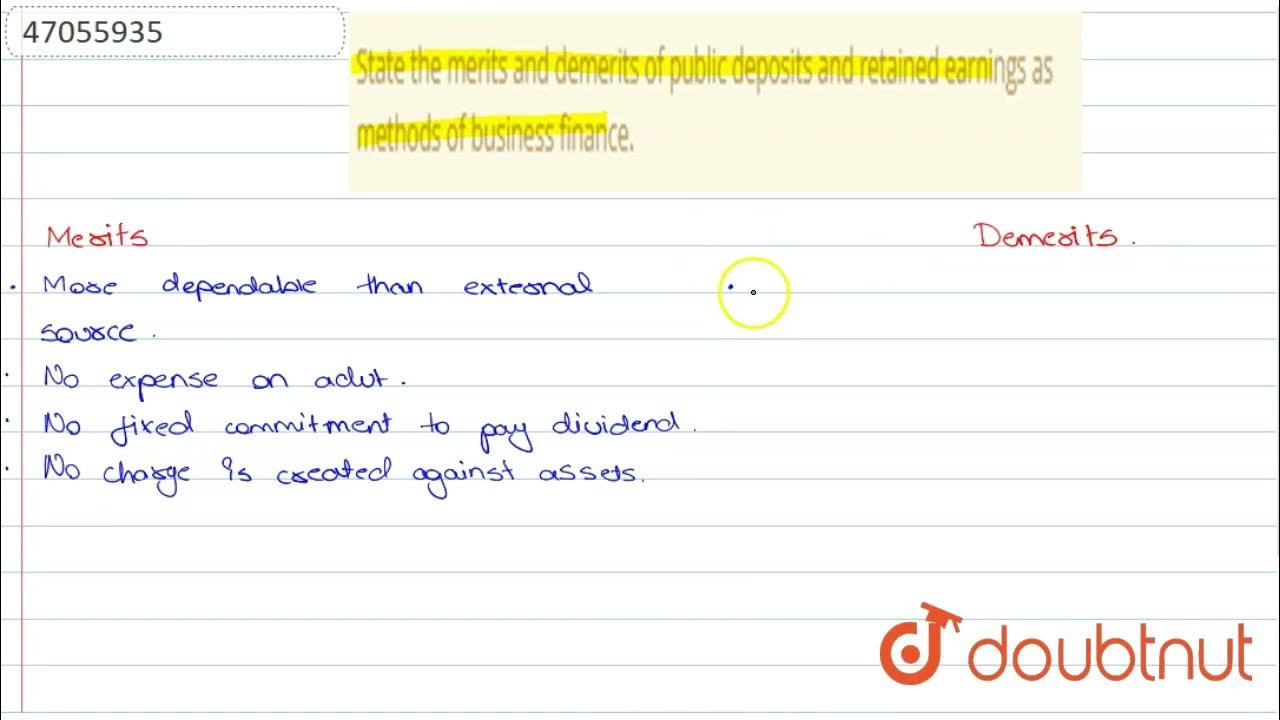 47055935
State the merits and demerits of public deposits and retained earnings as
methods of business finance.
Merits
Demerits.
• More dependable than external
source.
• No expense on advt.
• No fixed commitment to pay dividend.
• No charge is created against assets.
•
doubtnut